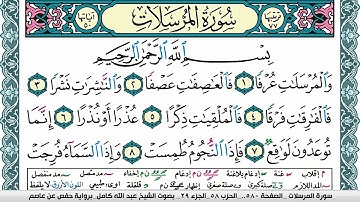 ترتيبها ٧٧
سُورَةُ المُرْسَلَاتِ
آياتها ٥٠
بِسْمِ ٱللَّهِ ٱلرَّحْمَٰنِ ٱلرَّحِيمِ
وَٱلْمُرْسَلَٰتِ عُرْفًا ١ فَٱلْعَٰصِفَٰتِ عَصْفًا ٢ وَٱلنَّٰشِرَٰتِ نَشْرًا ٣
فَٱلْفَٰرِقَٰتِ فَرْقًا ٤ فَٱلْمُلْقِيَٰتِ ذِكْرًا ٥ عُذْرًا أَوْ نُذْرًا ٦ إِنَّمَا
تُوعَدُونَ لَوَٰقِعٌ ٧ فَإِذَا ٱلنُّجُومُ طُمِسَتْ ٨ وَإِذَا ٱلسَّمَآءُ فُرِجَتْ
سورة المرسلات - الصفحة ٥٨٠ - الحزب ٥٨ - الجزء ٢٩ - بصوت الشيخ عبد الله كامل - برواية حفص عن عاصم